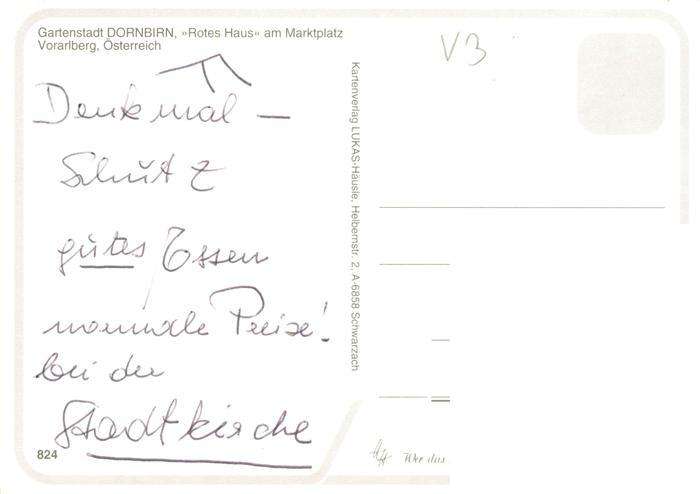 Gartenstadt DORNBIRN, »Rotes Haus« am Marktplatz
Vorarlberg, Österreich
V3
Denkmal –
Schutz
gutes Essen
normale Preise!
bei der
Stadtkirche
824
Kartenverlag LUKAS-Häusle, Helbernstr. 2, A-6858 Schwarzach
Wer das